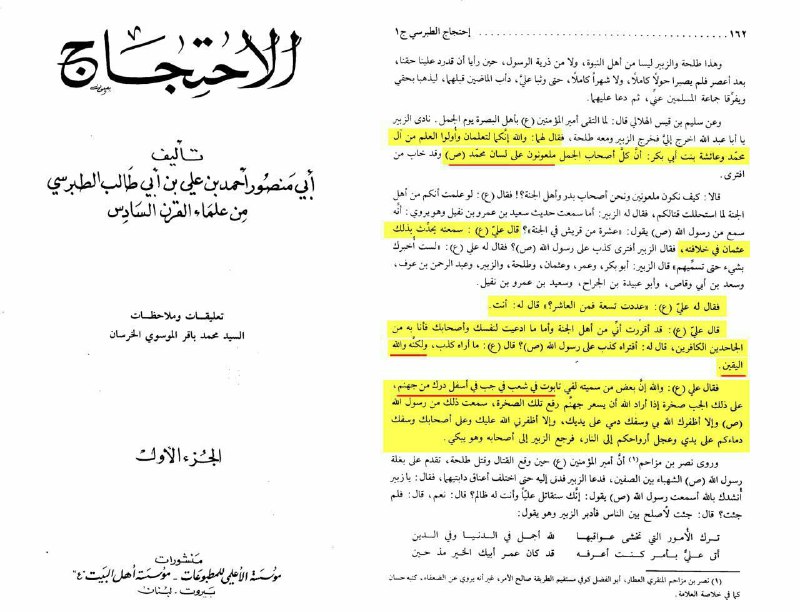 الاحتجاج
تأليف
أبي منصور أحمد بن علي بن أبي طالب الطبرسي
من علماء القرن السادس
تعليقات وملاحظات
السيد محمد باقر الموسوي الخرسان
الجزء الأول
منشورات
مؤسسة الأعلمي للمطبوعات - مؤسسة أهل البيت
بيروت . لبنان
١٦٢ . . . . . . . . . . . . . . . . . . . . إحتجاج الطبرسي ج١
وهذا طلحة والزبير ليسا من أهل النبوة، ولا من ذرية الرسول، حين رأيا أن قد رد علينا حقنا،
بعد أعصر فلم يصبرا حولًا كاملًا، ولا شهراً كاملًا، حتى وثبا عليّ، دأب الماضين قبلهما، ليذهبا بحقي
ويفرّقا جماعة المسلمين عنّي، ثم دعا عليهما.
وعن سليم بن قيس الهلالي قال: لما التقى أمير المؤمنين (ع) بأهل البصرة يوم الجمل. نادى الزبير
يا أبا عبد الله اخرج إليّ فخرج الزبير ومعه طلحة، فقال لهما: والله إنّكما لتعلمان وأولوا العلم من آل
محمد وعائشة بنت أبي بكر: أنّ كلّ أصحاب الجمل ملعونون على لسان محمد (ص) وقد خاب من
افترى.
قالا: كيف نكون ملعونين ونحن أصحاب بدر وأهل الجنة؟! فقال (ع): لو علمت أنكم من أهل
الجنة لما استحللت قتالكم، فقال له الزبير: أما سمعت حديث سعيد بن عمرو بن نفيل وهو يروي: أنّه
سمع من رسول الله (ص) يقول: «عشرة من قريش في الجنة»؟ قال عليّ (ع): سمعته يحدّث بذلك
عثمان في خلافته، فقال الزبير أفترى كذب على رسول الله (ص)؟ فقال له علي (ع): «لست أخبرك
بشيء حتى تسمّيهم» قال الزبير: أبو بكر، وعمر، وعثمان، وطلحة، والزبير، وعبد الرحمن بن عوف،
وسعد بن أبي وقاص، وأبو عبيدة بن الجراح، وسعيد بن عمرو بن نفيل.
فقال له عليّ (ع): «عددت تسعة فمن العاشر؟» قال له: أنت.
قال عليّ (ع): قد أقررت أنّي من أهل الجنة وأما ما ادعيت لنفسك وأصحابك فأنا به من
الجاحدين الكافرين، قال له: أفتراه كذب على رسول الله (ص)؟ قال (ع): ما أراه كذب، ولكنّه والله
اليقين.
فقال علي (ع): والله إنّ بعض من سميته لفي تابوت في شعب في جب في أسفل درك من جهنم،
على ذلك الجب صخرة إذا أراد الله أن يسعر جهنّم رفع تلك الصخرة، سمعت ذلك من رسول الله
(ص) وإلا أظفرك الله بي وسفك دمي على يديك، وإلا أظفرني الله عليك وعلى أصحابك وسفك
دماءكم على يدي وعجل أرواحكم إلى النار، فرجع الزبير إلى أصحابه وهو يبكي.
وروى نصر بن مزاحم(١) أنّ أمير المؤمنين (ع) حين وقع القتال وقتل طلحة، تقدم على بغلة
رسول الله (ص) الشهباء بين الصفين، فدعا الزبير فدنى إليه حتى اختلف أعناق دابتيهما، فقال: يا زبير
أنشدك بالله أسمعت رسول الله (ص) يقول: إنّك ستقاتل عليّاً وأنت له ظالم؟ قال: نعم، قال: فلم
جئت؟ قال: جئت لأصلح بين الناس فأدبر الزبير وهو يقول:
ترك الأمور التي تخشى عواقبها لله أجمل في الدنيا وفي الدين
أتى عليّ بأمر كنت أعرفه قد كان عمر أبيك الخير مذ حين
(١) نصر بن مزاحم المنقري العطار، أبو الفضل كوفي مستقيم الطريقة صالح الأمر، غير أنه يروي عن الضعفاء، كتبه حسان
كما في خلاصة العلامة.